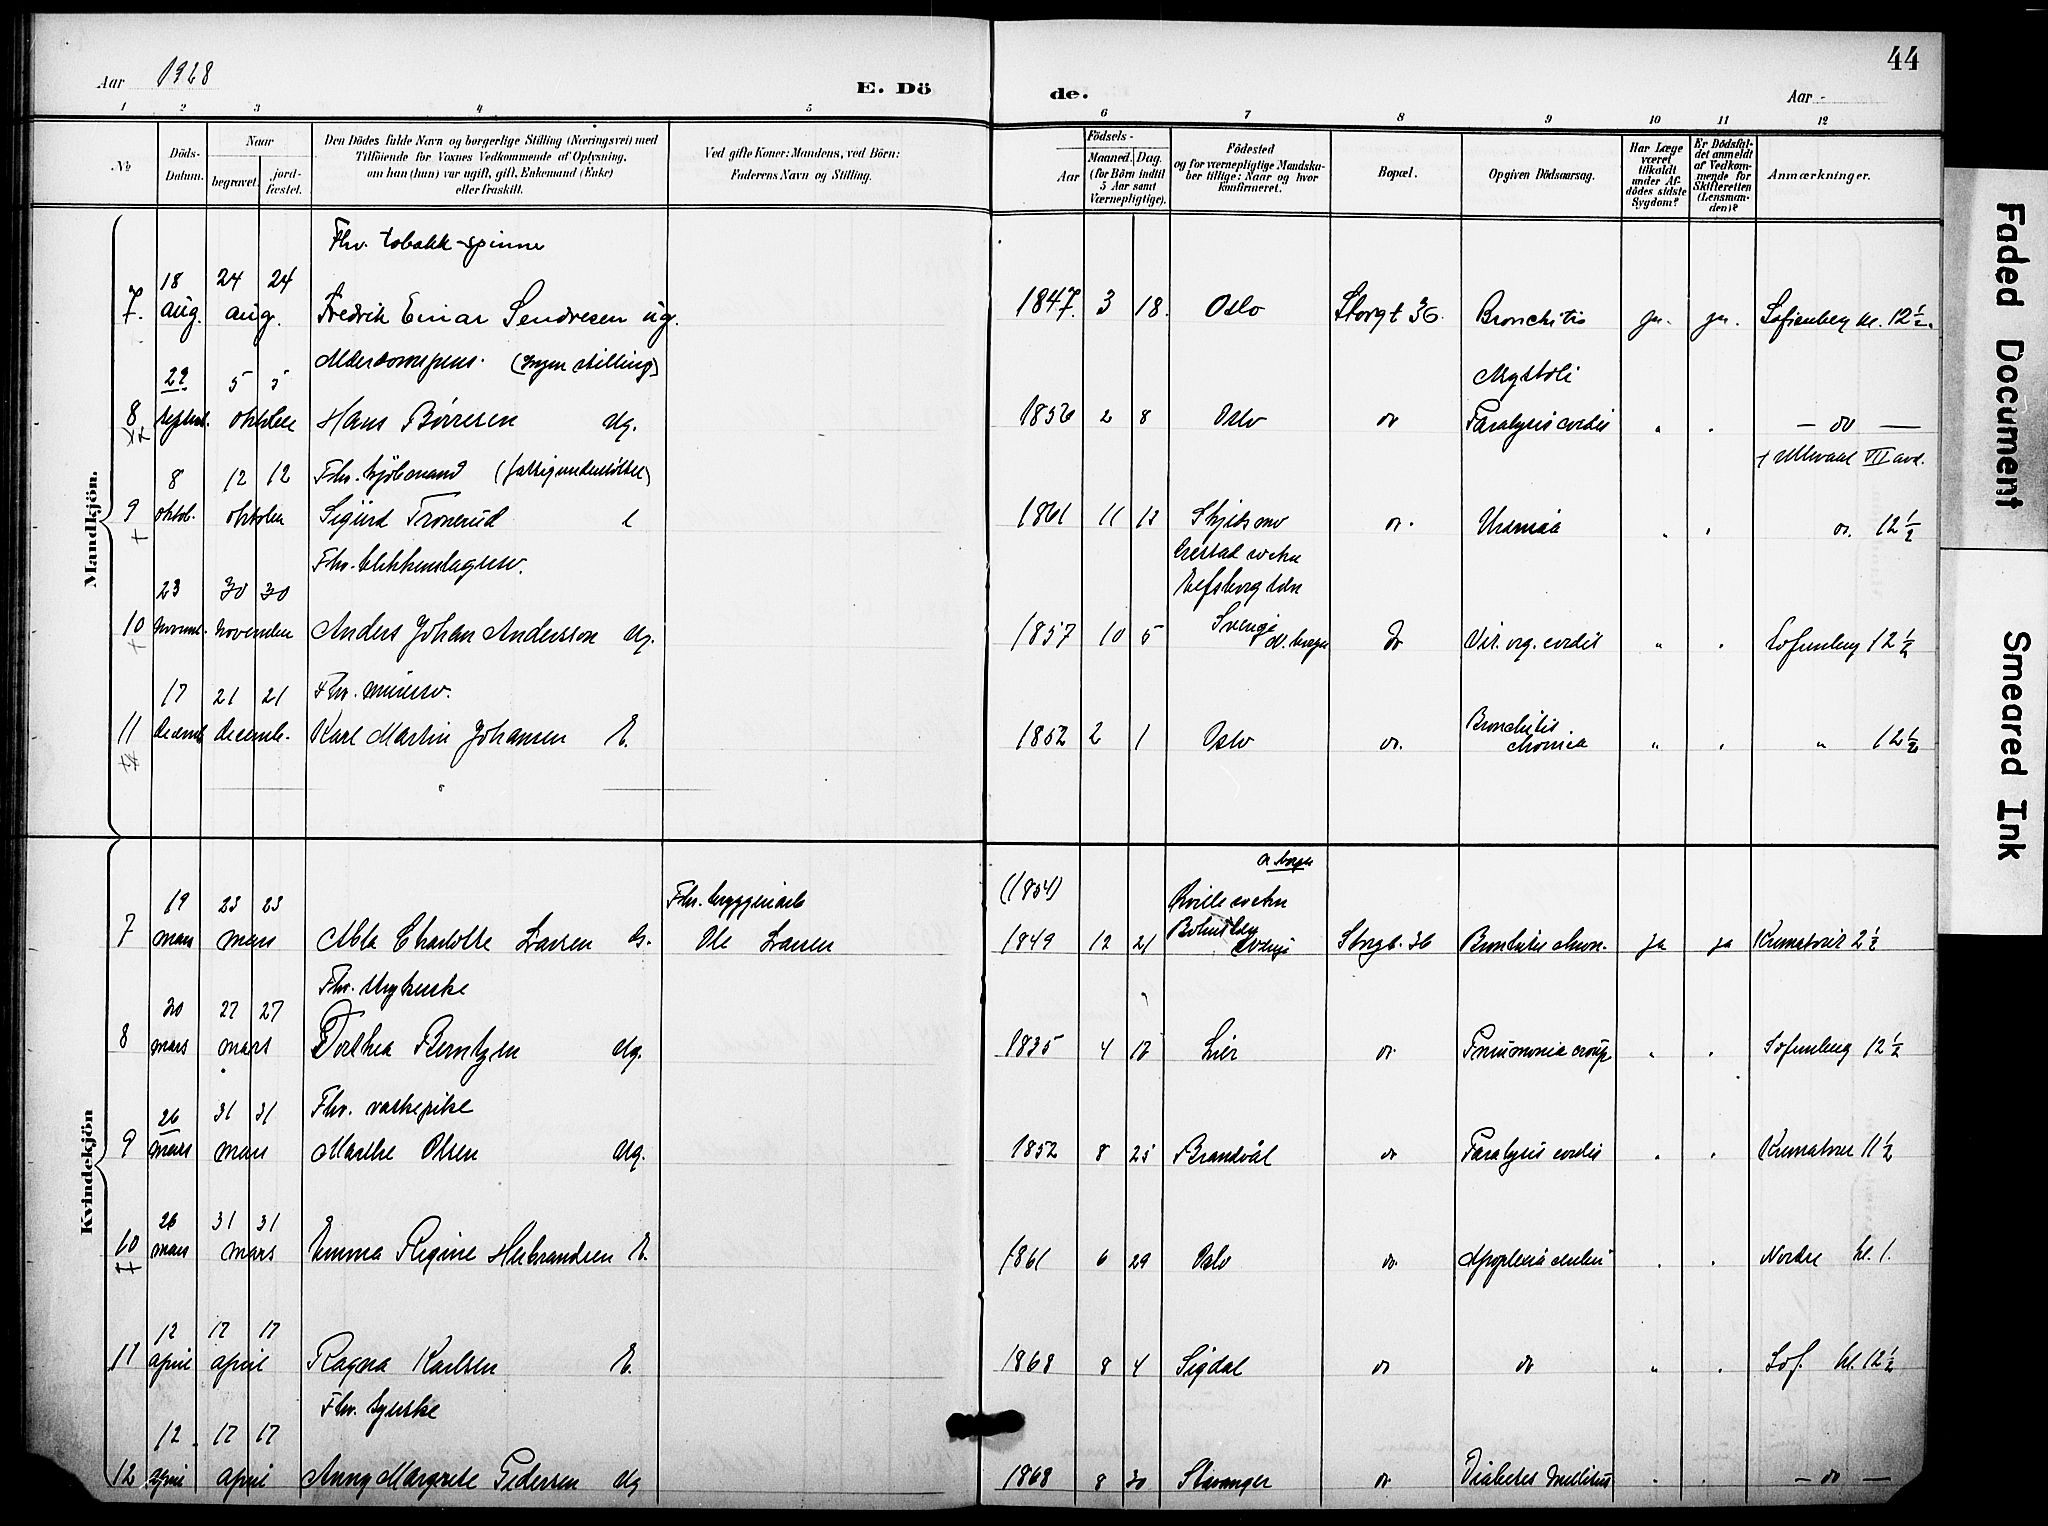 44
Aar 1928
E. Dö
de.
Aar
1 2 3 4 5 6 7 8 9 10 11 12
No
Döds-Datum.
Naar
begravet.
jord-fæstet.
Den Dödes fulde Navn og borgerlige Stilling (Næringsvei) med
Tilföiende for Voxnes Vedkommende af Oplysning,
om han (hun) var ugift, gift, Enkemand (Enke)
eller fraskilt.
Ved gifte Koner: Mandens, ved Börn:
Faderens Navn og Stilling.
Födsels-
Aar
Maaned.
Dag.
(for Börn indtil
5 Aar samt
Værnepligtige).
Födested
og for værnepligtige Mandska-
ber tillige: Naar og hvor
konfirmeret.
Bopæl.
Opgiven Dödsaarsag.
Har Læge
været
tilkaldt
under Af-
dödes sidste
Sygdom?
Er Dödsfal-
det anmeldt
af Vedkom-
mende for
Skifteretten
(Lensman-
den)?
Anmærkninger.
Mandkjön.
Fhv. tobakk-spinner
18 24 24
7. aug. aug. Fredrik Einar Sendresen ug. 1847. 3 18. Oslo Storgt 36. Bronchitis ja. ja. Sofienberg kl. 12 ½.
Alderdomspens. (ingen stilling)
29 5 5
8 septemb. oktober Hans Börresen Ug. 2 8 Oslo do Paralysis cordis " " — do —
+ Ullevaal VII avd.
8 12 12 Fhv. (fattigunderstöttet)
9 oktob. oktober Sigurd Tronerud 1861 11 Uræmia " " do. 12 ½
23 30 30
Sverige
10 novemb. november Anders Johan Andersson Ug. 1857 10 5 do Vit. org. cordis " " Sofienberg 12 ½
17 21 21 Fhv. murersv.
11 decemb. decemb. Karl Martin Johansen E. 1852 2 1 Oslo do. Bronchitis chronica " " " 12 ½
Kvindekjön
19 23 23 Fhv. bryggeriarb (1854)
7 mars mars Charlotte Larsen G. Ole Larsen 1849 12 21 Sverige Storgt. 36 Bronchitis chron. ja ja Krematoriet 2 ½
20 27 27
8 mars mars Dorthea Berntzen Ug. 1835 4 Lier do. Pneumonia croup " " Sofienberg 12 ½
26 31 31 Fhv. vaskepike
9 mars mars Marthe Olsen Ug. 1852 8 25 Brandvål do Paralysis cordis " " Krematoriet 11 ½
26 31 31
10 mars mars Emma Regine Herbrandsen E. 1861 6 29 Oslo do. Apoplexia cerebri " " Nordre kl. 1.
12 17 17
11 april april Ragna Karlsen E. 1868 8 4 Sigdal do do " " Sof. kl. 12 ½
Fhv. syerske
12 17 17
12 april april Anny Margrete Pedersen Ug 1868 8 30 Stavanger do. Diabetes mellitus " " — do —
Faded Document
Smeared Ink